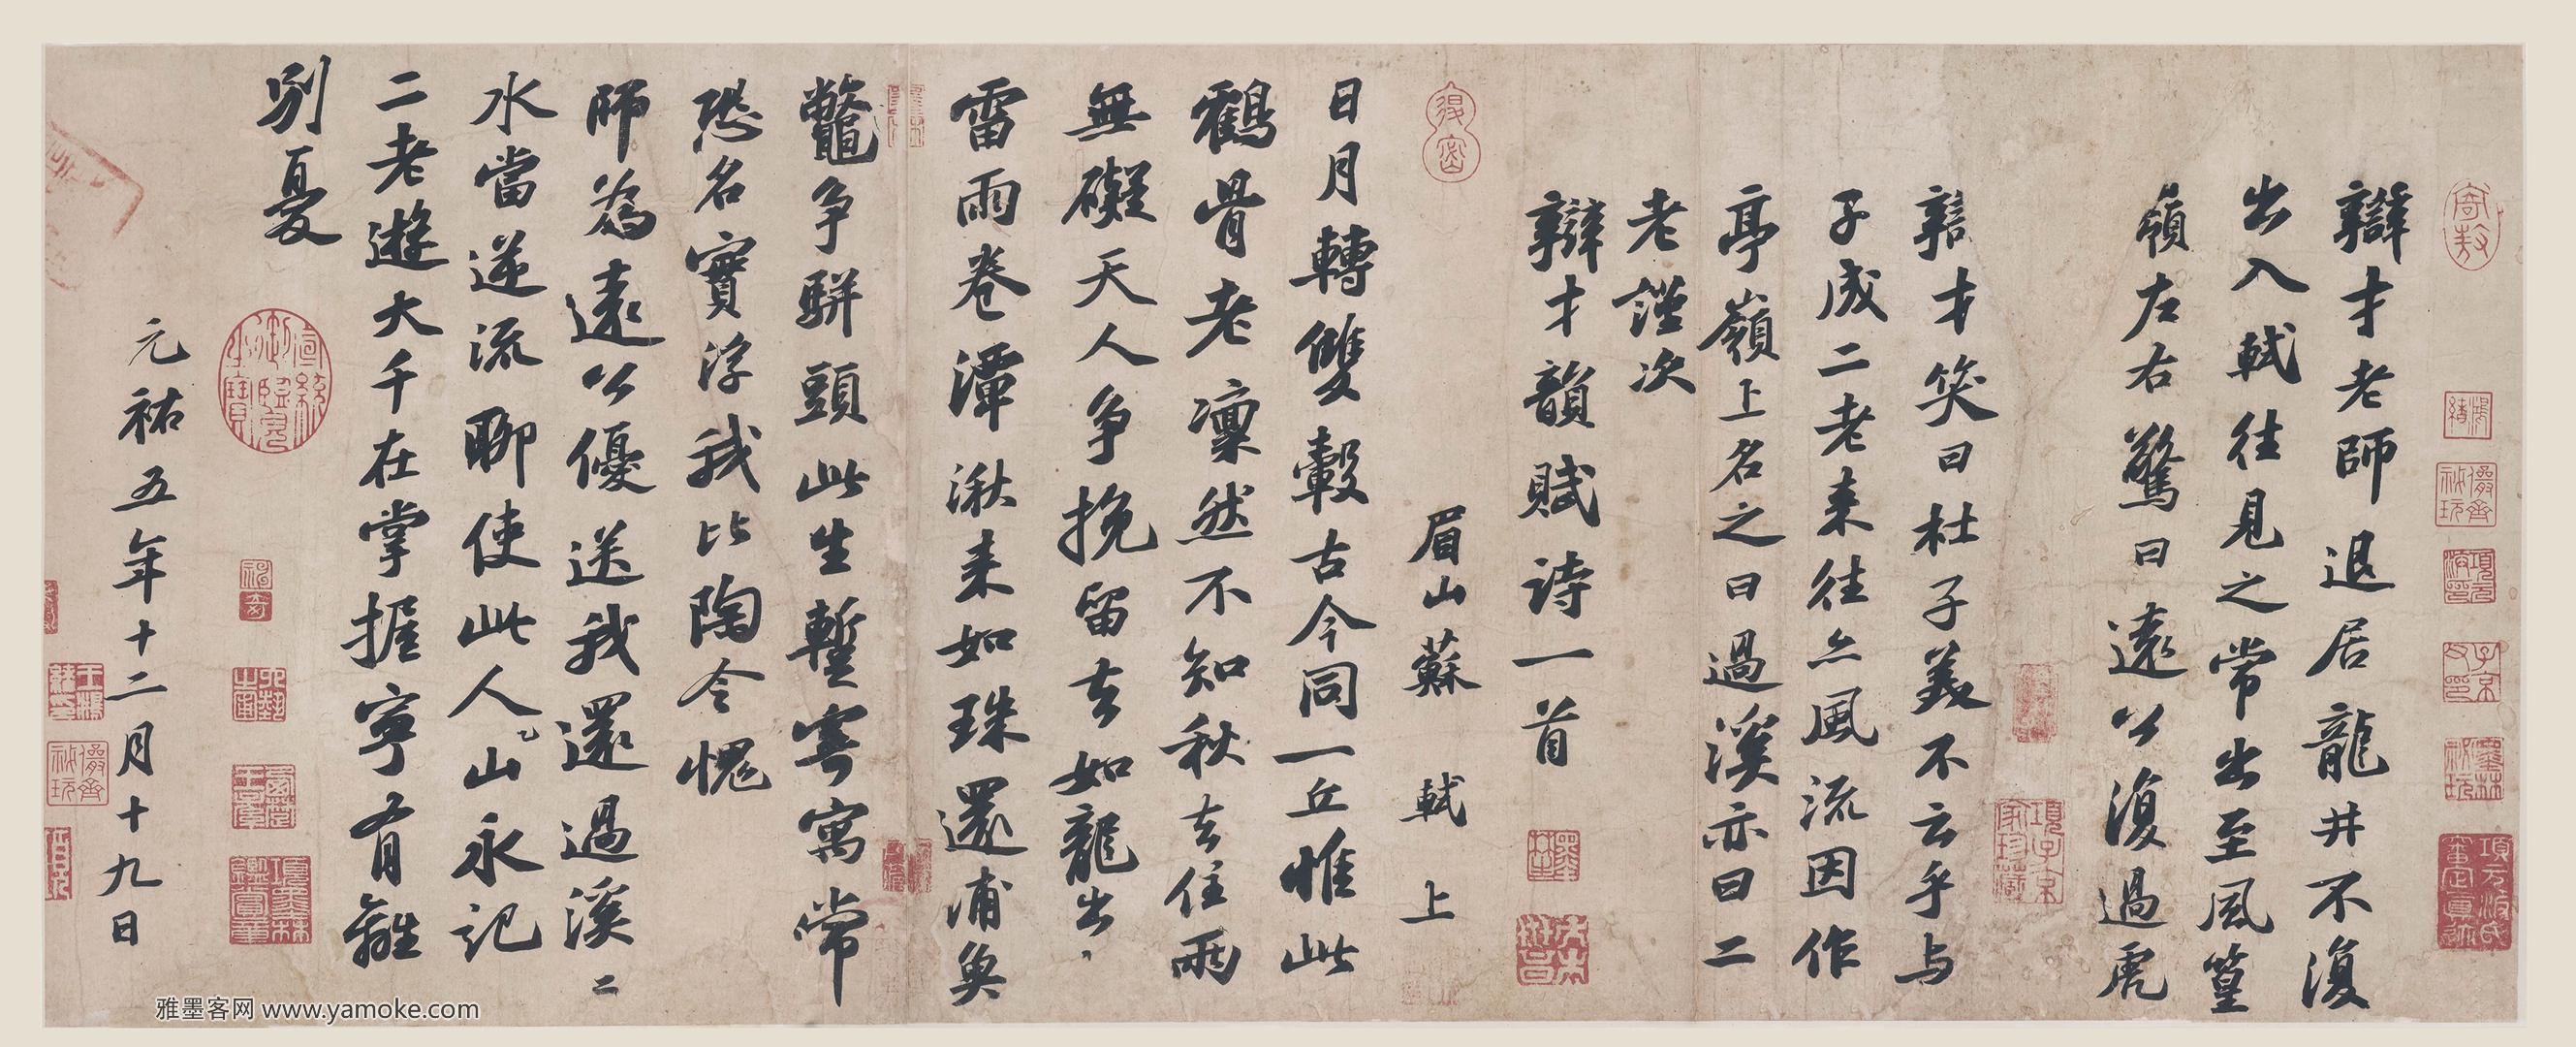 辯才老師退居龍井不復
出入軾往見之常出至風篁
嶺左右驚曰遠公復過虎
辯才笑曰杜子美不云乎与
子成二老來往亦風流因作
亭嶺上名之曰過溪亦曰二
老謹次
辯才韻賦詩一首
眉山蘇軾上
日月轉雙轂古今同一丘惟此
鶴骨老凜然不知秋去住兩
無礙天人争挽留去如龍出
雷雨卷潭湫來如珠還浦魚
鼈争駢頭此生暫寄寓常
恐名實浮我比陶令愧
師為遠公優送我還過溪二
水當逆流聊使此人山永記
二老遊大千在掌握寧有離
別憂
元祐五年十二月十九日
雅墨客网 www.yamoke.com